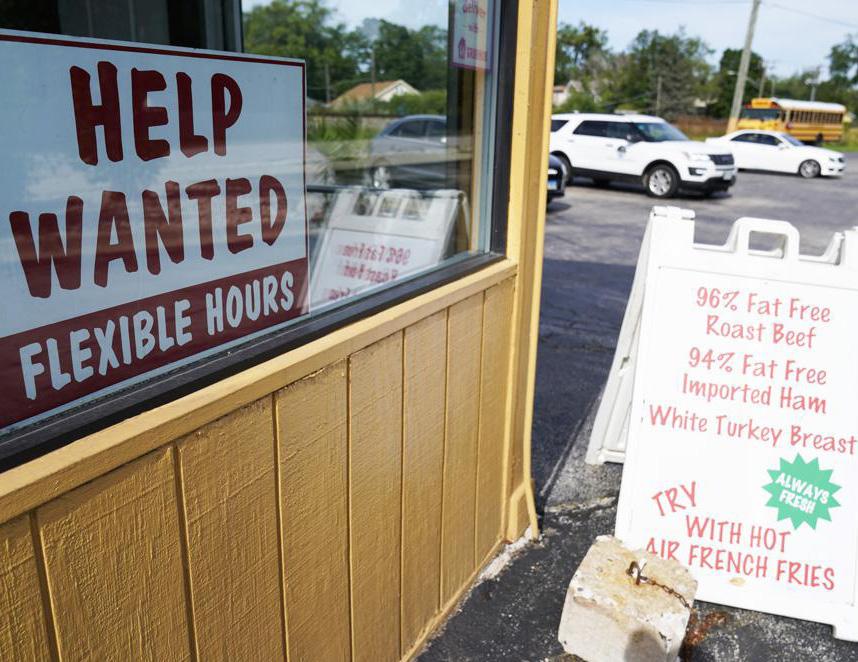 HELP
WANTED
FLEXIBLE HOURS
96% Fat Free
Roast Beef
94% Fat Free
Imported Ham
White Turkey Breast
ALWAYS
FRESH
TRY
WITH HOT
AIR FRENCH FRIES